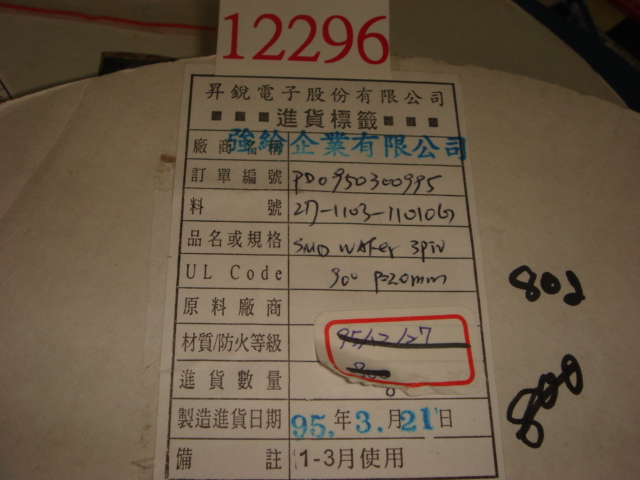 12296
昇銳電子股份有限公司
進貨標籤
廠商名稱 強給企業有限公司
訂單編號 PD0950300995
料號 27-1103-11010G
品名或規格 SMD Wafer 3pin
UL Code 90° P=2.0mm
原料廠商
材質/防火等級 95/12/27
進貨數量
製造進貨日期 95.年3.月21日
備註 1-3月使用
802
800